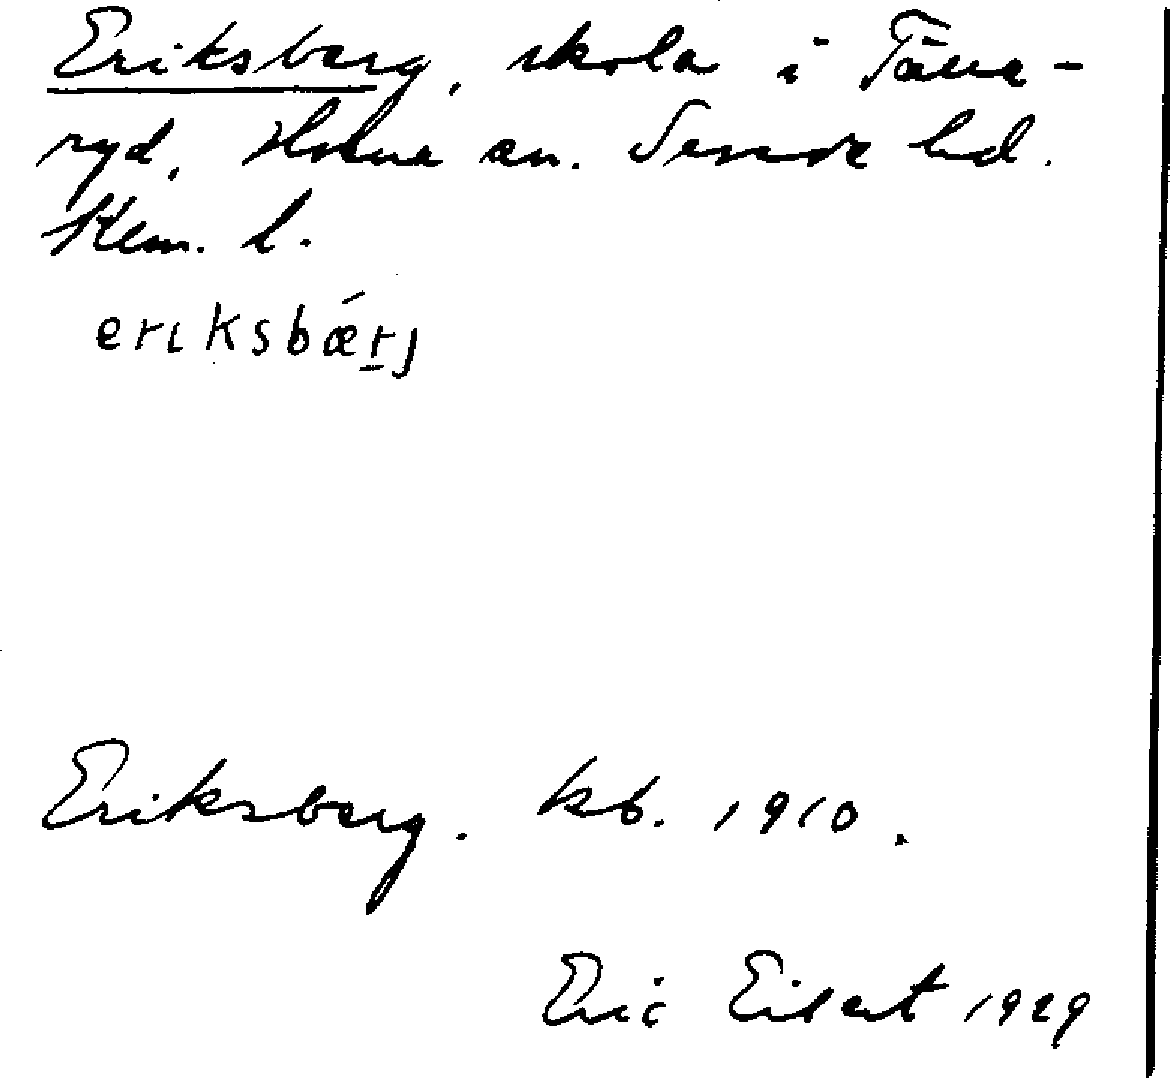 Eriksberg, skola i Tånna-
ryd, sn. Sunnerbo hd.
l.
erıksbǽrj
Eriksberg. kb. 1910.
Eric Elsert 1929